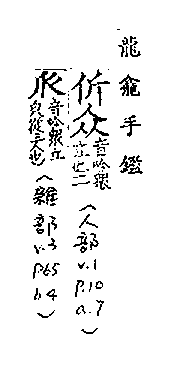 龍龕手鑑
㐺众音吟衆
立也二
(人部
v.1
p.10
a.7)
音吟衆立
皃從三人也
(雜部
v.3
p.65
b.4)